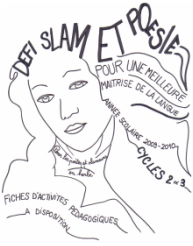 DEFI SLAM ET POESIE
POUR UNE MEILLEURE
MAITRISE DE LA LANGUE
ANNEE SCOLAIRE 2009-2010
CYCLES 2 et 3
FICHES D'ACTIVITES PEDAGOGIQUES
A DISPOSITION